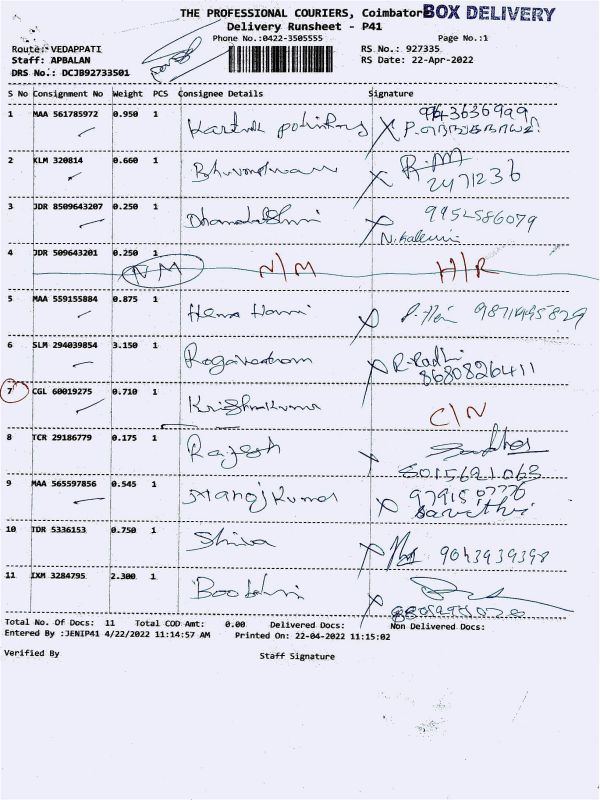 THE PROFESSIONAL COURIERS, Coimbator BOX DELIVERY
Delivery Runsheet - P41
Phone No.:0422-3505555 Page No.:1
Route: VEDAPPATI RS No.: 927335
Staff: APBALAN RS Date: 22-Apr-2022
DRS No.: DCJB92733501
S No Consignment No Weight PCS Consignee Details Signature
1 MAA 561785972 0.950 1
2 KLM 320814 0.660 1 R.M
2471236
3 JDR 8509643207 0.250 1 9952586079
4 JDR 509643201 0.250 1
NM N/M H/R
5 MAA 559155884 0.875 1
6 SLM 294039854 3.150 1 R. Radhi
8680826411
7 CGL 60019275 0.710 1 Krishnakumar C/N
8 TCR 29186779 0.175 1 Rajesh
8015621063
9 MAA 565597856 0.545 1 Manoj Kumar
Savithri
10 TDR 5336153 0.750 1 Shiva 9043939398
11 IXM 3284795 2.300 1
Total No. Of Docs: 11 Total COD Amt: 0.00 Delivered Docs: Non Delivered Docs:
Entered By :JENIP41 4/22/2022 11:14:57 AM Printed On: 22-04-2022 11:15:02
Verified By Staff Signature